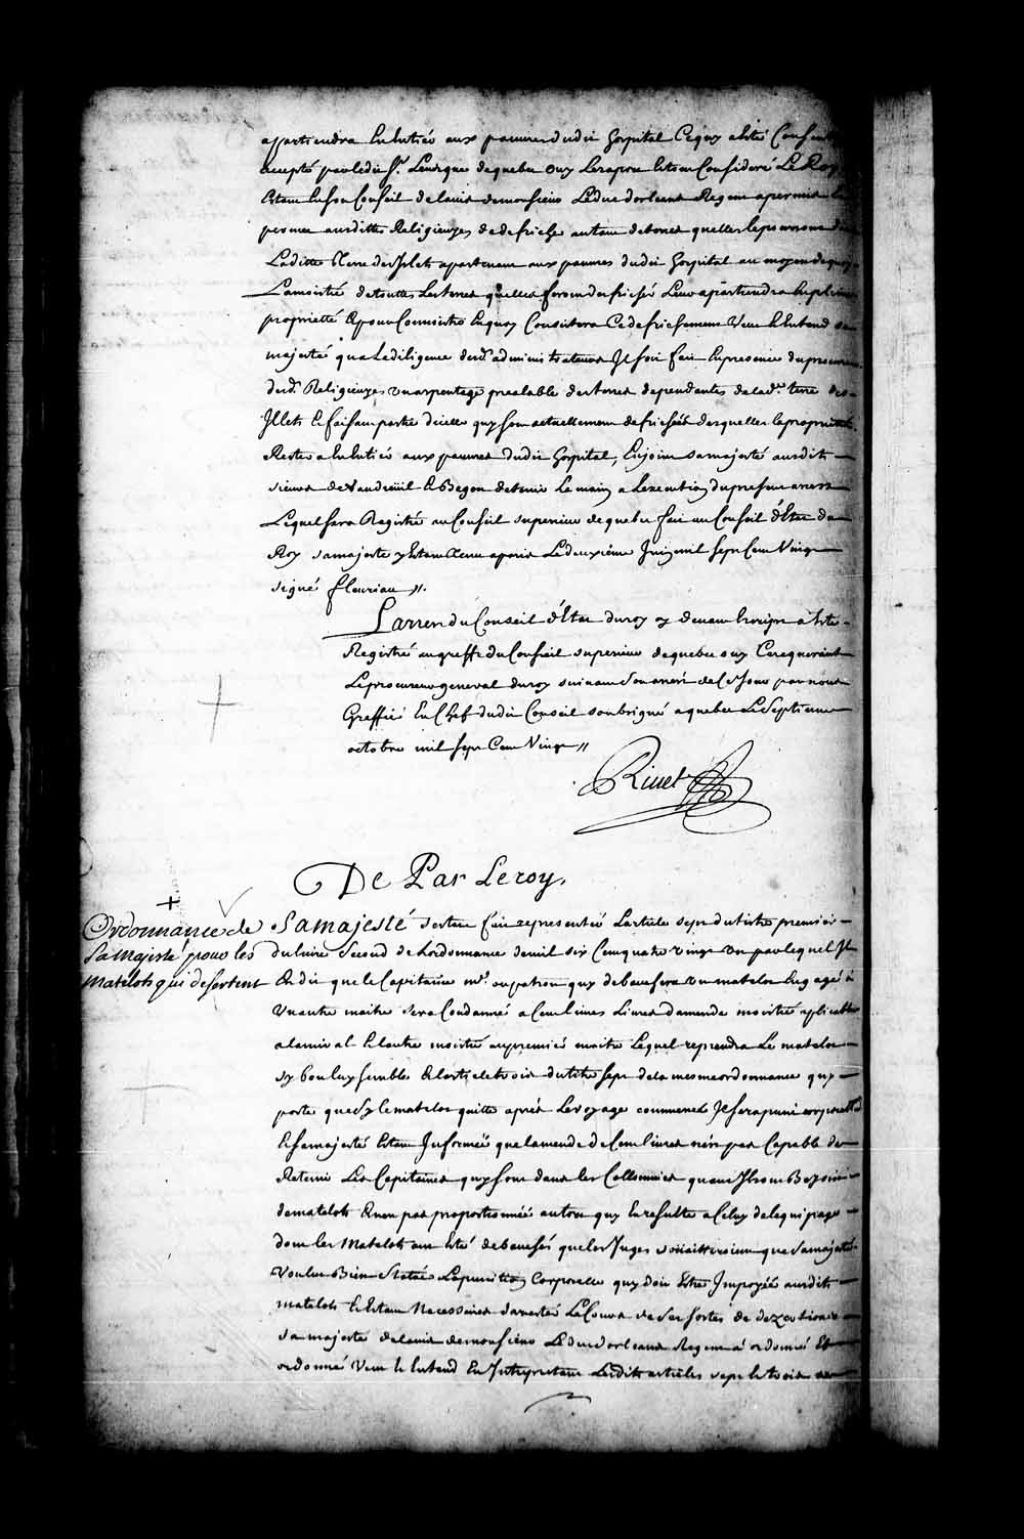 apartiendra En Entier aux pauvres dudit hospital Ce quy a Esté
accepté par ledit Sr. Leveque de quebec ouy Le raport Et tout Consideré Le Roy
Etant En Son Conseil de lavis de monsieur Le duc dorleans Regent a permis
permet ausdittes Religieuses de defricher autant de terres quelles le pourront
Laditte Terre des Islets apartenant aux pauvres dudit hospital au moyen de quoy
La moitié de touttes Les terres quelles feront defricher Leur apartiendra En pleine
proprieté Et pour Connoistre En quoy Consistera Ce defrichement Veut Et Entend sa
majesté qua la diligence desd. administrateurs Il soit fait En presence du procureur
desd. Religieuses un arpentage prealable des terres dependantes de lad. terre des
Illets Et faisant partie dicelle quy sont actuellement defrichées desquelles la proprieté
Restera En Entier aux pauvres dudit hospital, Enjoint sa majesté ausdits
sieurs de Vaudreuil Et Begon de tenir La main a Lexecution du present arrest
Lequel sera Registré au Conseil superieur de quebec fait au Conseil d'Etat du
Roy sa majesté y Etant Tenu a paris Le deuxième Juin mil sept Cent Vingt
signé fleuriau //.
Larrest du Conseil d'Etat du roy cy devant Ecrit a Esté
Registré au greffe du Conseil superieur de quebec ouy Ce requerant
Le procureur general du roy suivant Son arrest de Ce Jour par nous
Greffier En Chef dudit Conseil soubsigné a quebec Le Septieme
octobre mil sept Cent Vingt //
Rivet
De Par Le roy.
Ordonnance de
Sa Majesté pour les
Matelots qui desertent
Sa majesté sestant fait representer Larticle sept du titre premier
du livre Second de Lordonnance de mil six Cent quatre vingt un par lequel Il
Est dit que le Capitaine me. ou patron quy debauchera un matelot Engagé a
Un autre maitre sera Condamné a Cent livres damende moitié aplicable
a lamiral Et lautre moitié au premier maitre Lequel reprendra Le matelot
sy bon luy semble Et larticle trois du titre sept de la mesme ordonnance quy
porte que Sy le matelot quitte aprés Le voyage commencé Il sera puni corporellement
Et sa majesté Etant Informée que lamende de Cent livres nest pas Capable de
Retenir Les Capitaines quy sont dans les Collonnies quand Ils ont Besoin
de matelots Et nest pas proportionnée au tort quy En resulte a Celuy de lequipage
dont les Matelots ont Esté debauchés que les Juges que sa majesté
voulut Bien Statuer La punition Corporelle quy doit Estre Imposée ausdits
matelots Et Etant Necessaire darrester Le Cours de Ses sortes de
sa majesté de lavis de monsieur Le duc dorleans Regent a ordonné Et
ordonne Veut Et Entend En Interpretant Lesdits articles sept Et trois